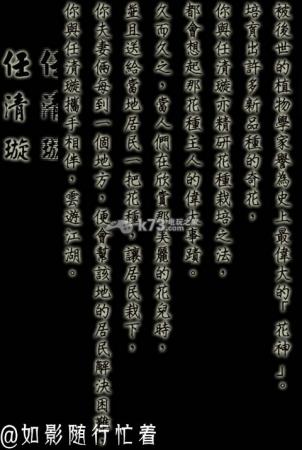 任清璇
任清璇
你與任清璇攜手相伴,雲遊江湖。
你夫妻倆每到一個地方,便會幫該地的居民解決困難,
並且送給當地居民一把花種,讓居民栽下,
久而久之,當人們在欣賞那美麗的花兒時,
都會想起那花種主人的偉大事蹟。
你與任清璇亦精研花種栽培之法,
培育出許多新品種的奇花,
被後世的植物學家譽為史上最偉大的「花神」。
k73
@如影随行忙着